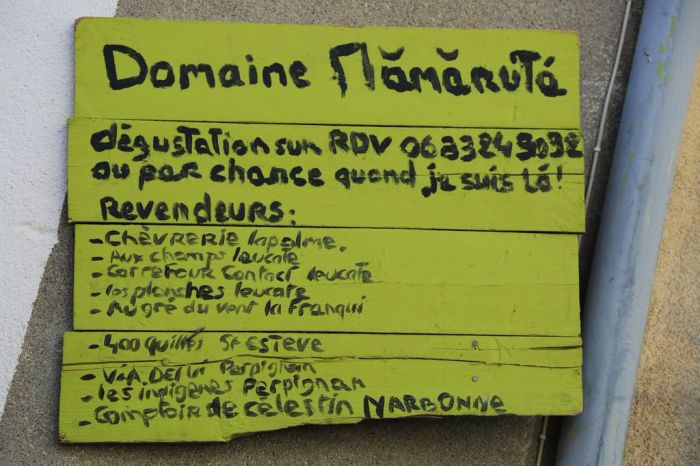 Domaine MămăRŭtá
dégustation sur RDV 0683245032
ou par chance quand je suis là!
Revendeurs:
- Chèvrerie lapalme.
- Aux champs leucate
- Carrefour Contact leucate
- les planches leucate
- Au gré du vent la Franqui
- 400 quilles St ESTEVE
- VIA DEL Vi Perpignan
- les indigènes Perpignan
- Comptoir de célestin NARBONNE